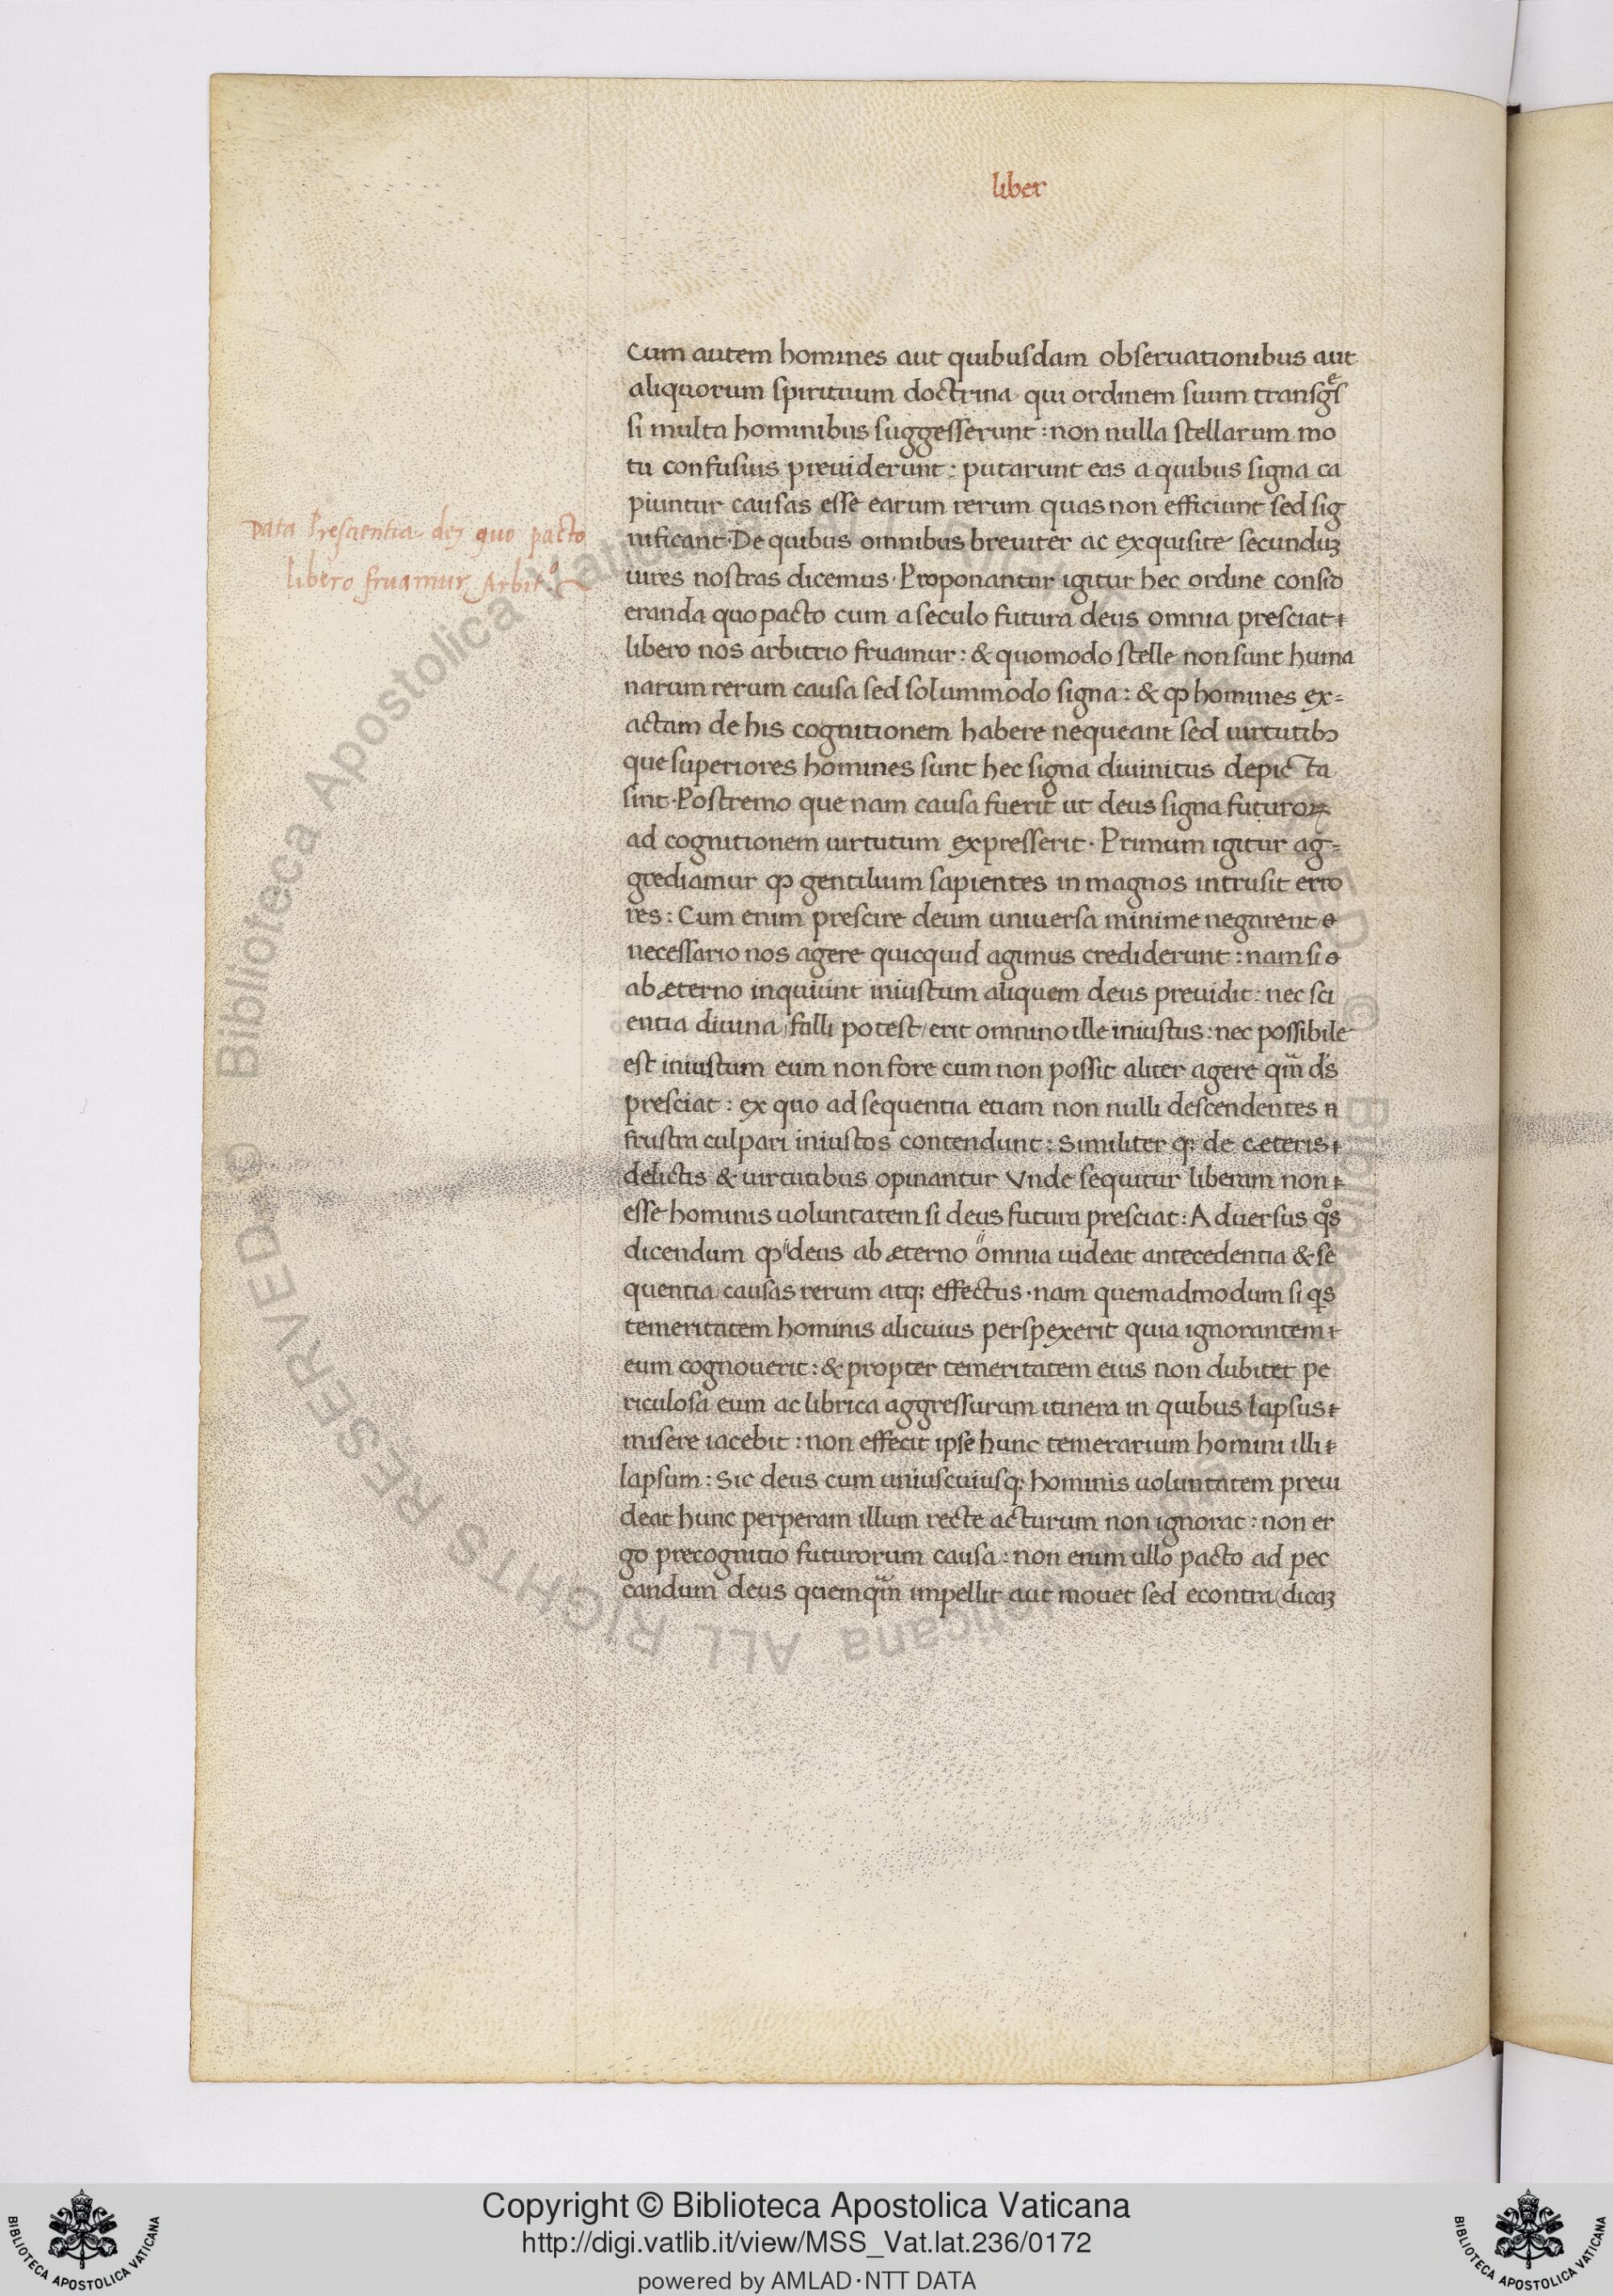 liber
Cum autem homines aut quibusdam obseruationibus aut
aliquorum spirituum doctrina qui ordinem suum transgͤs
si multa hominibus suggesserunt : non nulla stellarum mo
tu confusius preuiderunt : putarunt eas a quibus signa ca
piuntur causas esse earum rerum quas non efficiunt sed sig
nificant · De quibus omnibus breuiter ac exquisite secunduꝫ
uires nostras dicemus · Proponantur igitur hec ordine consid
eranda quo pacto cum a seculo futura deus omnia presciat
libero nos arbitrio fruamur : & quomodo stelle non sunt huma
narum rerum causa sed solummodo signa : & ꝙ homines ex=
actam de his cognitionem habere nequeant sed uirtutibꝫ
que superiores homines sunt hec signa diuinitus depicta
sint · Postremo que nam causa fuerit ut deus signa futuroꝝ
ad cognitionem uirtutum expresserit · Primum igitur ag=
grediamur ꝙ gentilium sapientes in magnos intrusit erro
res : Cum enim prescire deum uniuersa minime negarent
necessario nos agere quicquid agimus crediderunt : nam si
ab æterno inquiunt iniustum aliquem deus preuidit : nec sci
entia diuina falli potest / erit omnino ille iniustus : nec possibile
est iniustum eum non fore cum non possit aliter agere qm̃ ds̃
presciat : ex quo ad sequentia etiam non nulli descendentes
frustra culpari iniustos contendunt : Similiter qꝫ de cæteris
delictis & uirtutibus opinantur Vnde sequitur liberam non
esse hominis uoluntatem si deus futura presciat : Aduersus qͦs
dicendum ꝙ " deus ab æterno " omnia uideat antecedentia & se
quentia causas rerum atqꝫ effectus · nam quemadmodum si qs
temeritatem hominis alicuius perspexerit quia ignorantem
eum cognouerit : & propter temeritatem eius non dubitet pe
riculosa eum ac librica aggressurum itinera in quibus lapsus
misere iacebit : non effecit ipse hunc temerarium homini illi
lapsum : Sic deus cum uniuscuiusqꝫ hominis uoluntatem preui
deat hunc perperam illum recte acturum non ignorat : non er
go precognitio futurorum causa : non enim ullo pacto ad pec
candum deus quemqm̃ impellit aut mouet sed econtra dicaꝫ
Data Prescientia dej quo pacto
libero fruamur Arbitͦ
© Biblioteca Apostolica Vaticana ALL RIGHTS RESERVED
Copyright © Biblioteca Apostolica Vaticana
http://digi.vatlib.it/view/MSS_Vat.lat.236/0172
powered by AMLAD·NTT DATA
BIBLIOTECA APOSTOLICA VATICANA
BIBLIOTECA APOSTOLICA VATICANA